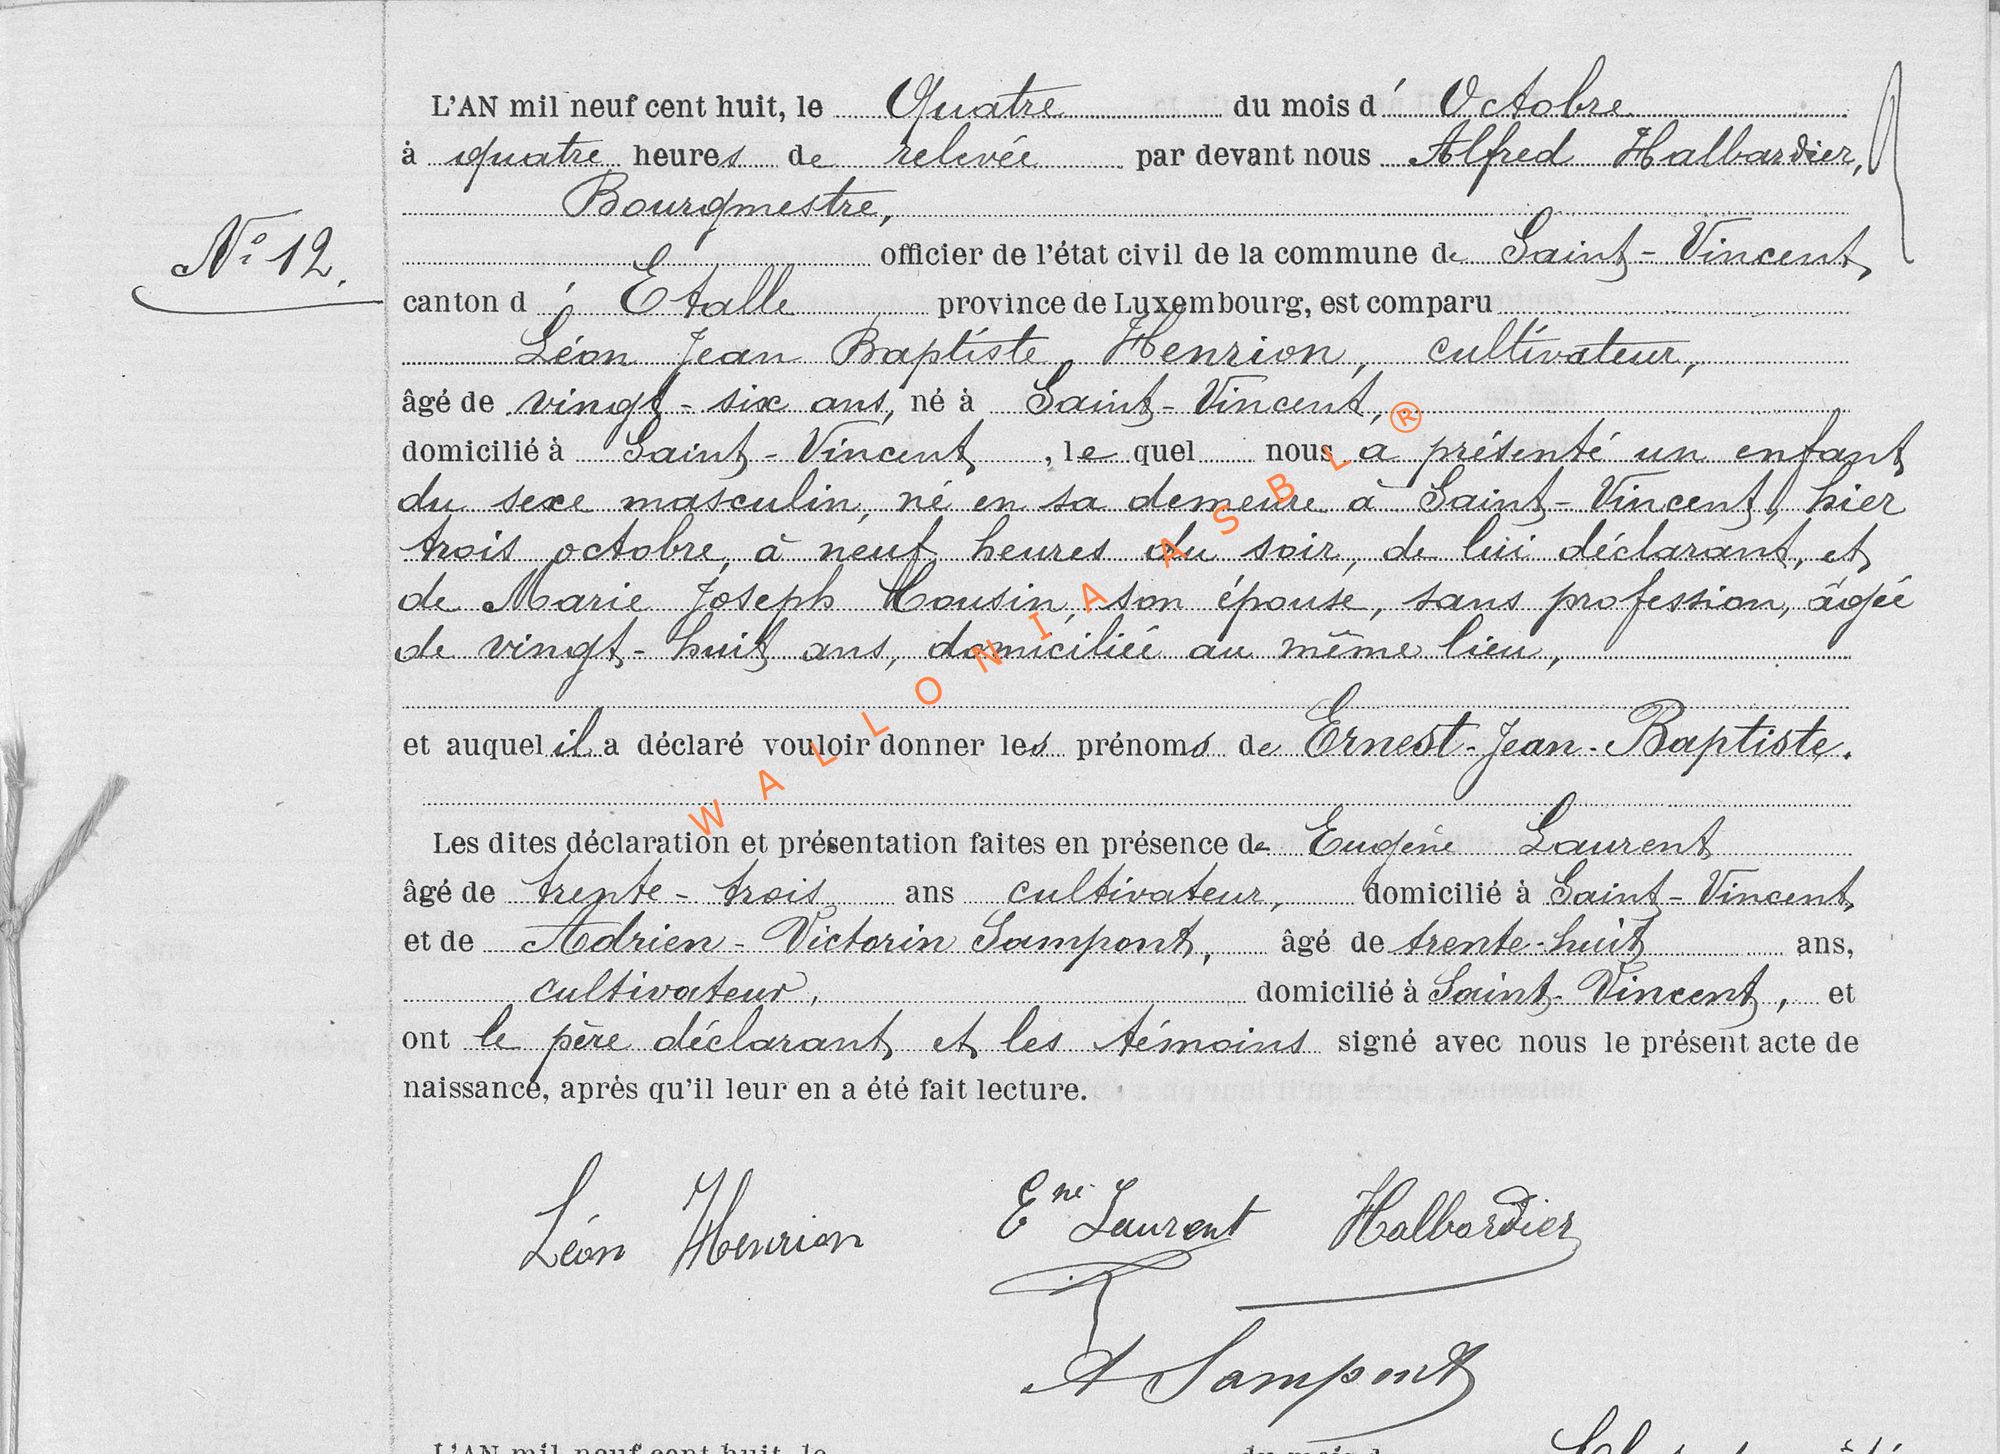 L'AN mil neuf cent huit, le Quatre du mois d' Octobre
à quatre heures de relevée par devant nous Alfred Halbardier,
Bourgmestre,
N° 12.
officier de l'état civil de la commune de Saint-Vincent,
canton d' Etalle province de Luxembourg, est comparu
Léon Jean Baptiste Henrion, cultivateur,
âgé de vingt-six ans, né à Saint-Vincent,
domicilié à Saint-Vincent, le quel nous a présenté un enfant
du sexe masculin, né en sa demeure à Saint-Vincent, hier
trois octobre, à neuf heures du soir, de lui déclarant, et
de Marie Joseph Cousin, son épouse, sans profession, âgée
de vingt-huit ans, domiciliée au même lieu,
et auquel il a déclaré vouloir donner les prénoms de Ernest-Jean-Baptiste.
Les dites déclaration et présentation faites en présence de Eugène Laurent
âgé de trente-trois ans cultivateur, domicilié à Saint-Vincent,
et de Adrien-Victorin Sampont, âgé de trente-huit ans,
cultivateur, domicilié à Saint-Vincent, et
ont le père déclarant et les témoins signé avec nous le présent acte de
naissance, après qu'il leur en a été fait lecture.
Léon Henrion Ene Laurent Halbardier
A Sampont
L'AN mil neuf cent huit, le du mois d
WALLONIA ASBL ®